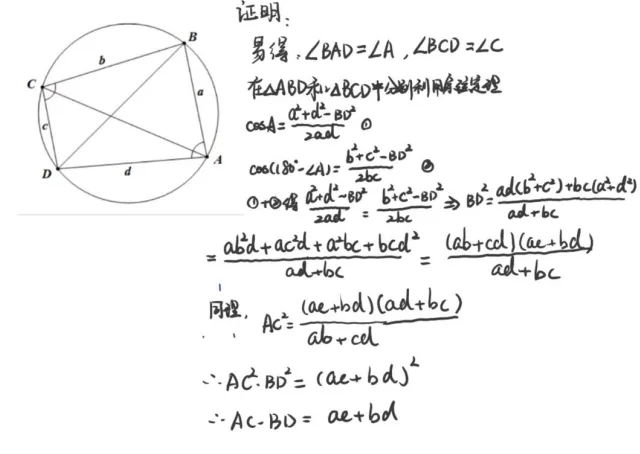 证明:
易得,∠BAD=∠A,∠BCD=∠C
在△ABD和△BCD中分别利用余弦定理
cosA=\frac{a²+d²-BD²}{2ad} ①
cos(180°-∠A)=\frac{b²+c²-BD²}{2bc} ②
①+②得 \frac{a²+d²-BD²}{2ad}=\frac{b²+c²-BD²}{2bc} ⇒ BD²=\frac{ad(b²+c²)+bc(a²+d²)}{ad+bc}
=\frac{ab²d+ac²d+a²bc+bcd²}{ad+bc}=\frac{(ab+cd)(ac+bd)}{ad+bc}
同理, AC²=\frac{(ac+bd)(ad+bc)}{ab+cd}
∴AC²·BD²=(ac+bd)²
∴AC·BD=ac+bd
B
b
C
a
c
A
d
D